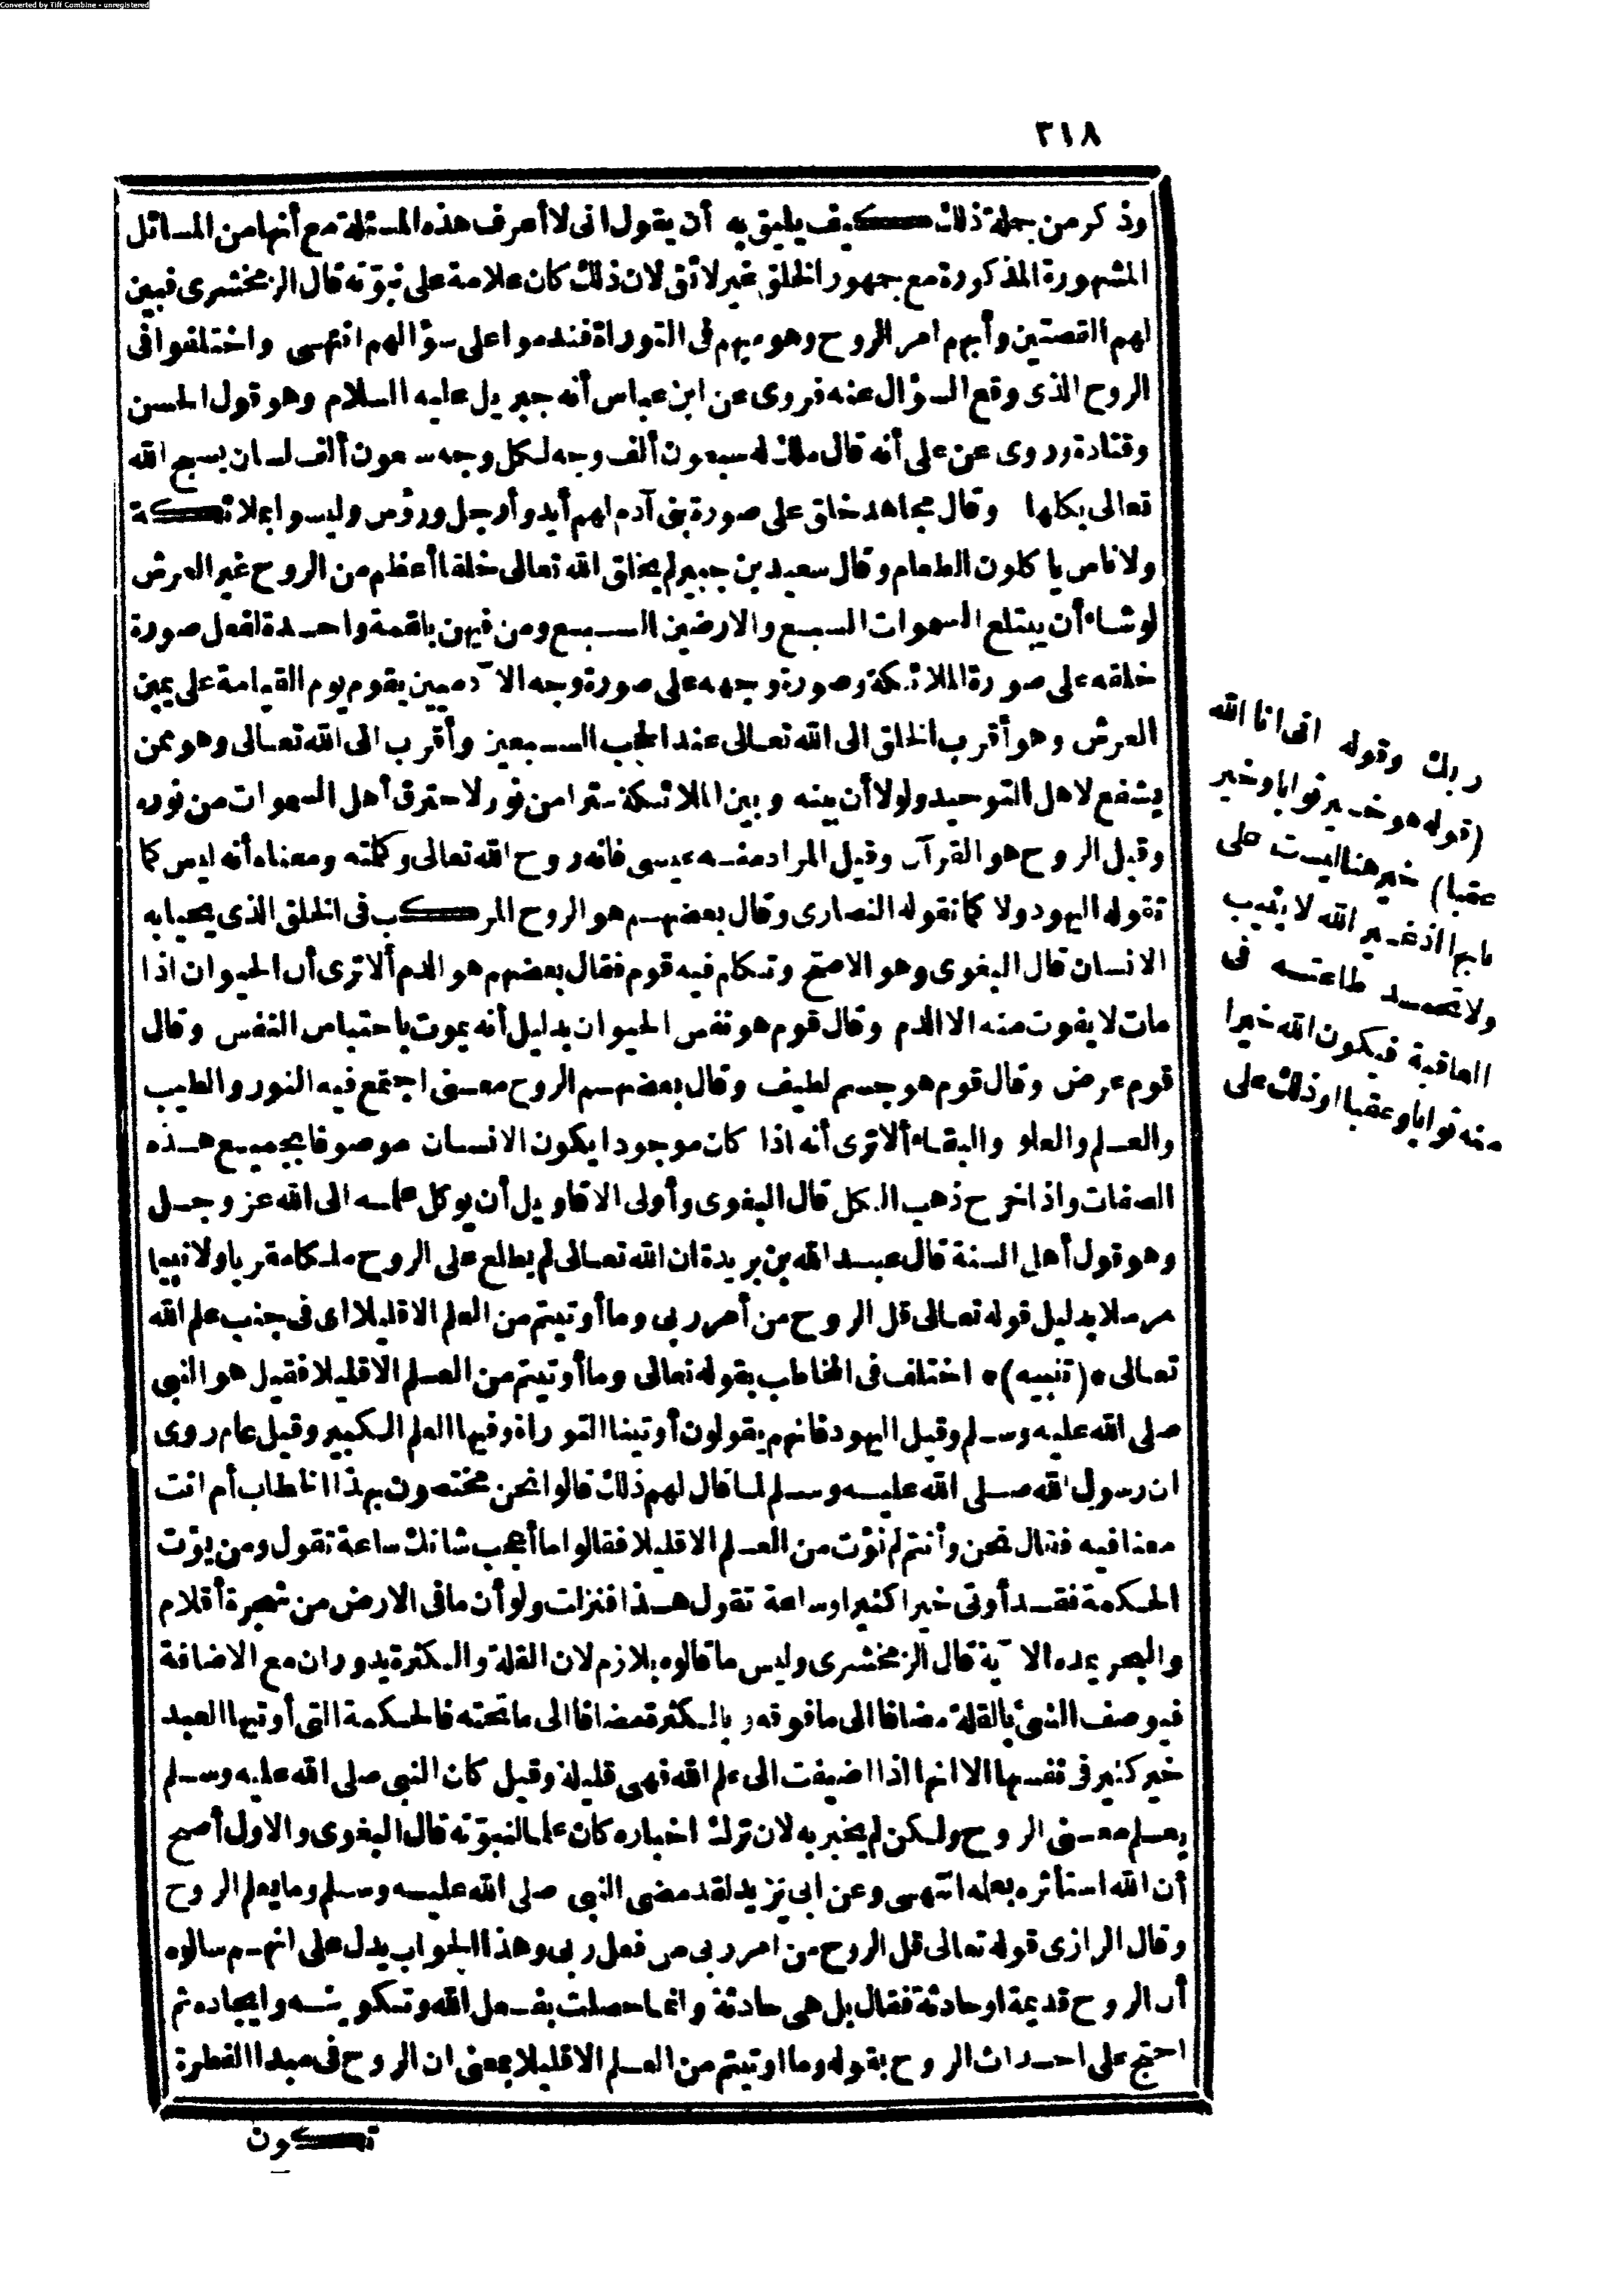 Converted by Tiff Combine - unregistered
٣١٨
وذكر من جملة ذلك كيف يليق به أن يقول انى لا أعرف هذه المسئلة مع أنها من المسائل
المشهورة المذكورة مع جمهور الخلق غير لائق لان ذلك كان علامة على نبوّته قال الزمخشرى فبين
لهم القصتين وأبهم امر الروح وهو مبهم فى التوراة فندموا على سؤالهم انتهى واختلفوا فى
الروح الذى وقع السؤال عنه فروى عن ابن عباس أنه جبريل عليه السلام وهو قول الحسن
وقتادة وروى عن على أنه قال ملك له سبعون ألف وجه لكل وجه سبعون ألف لسان يسبح الله
تعالى بكلها وقال مجاهد خلق على صورة بنى آدم لهم أيد وأرجل ورؤس وليسوا بملائكة
ولا ناس يا كلون الطعام وقال سعيد بن جبير لم يخلق الله تعالى خلقا أعظم من الروح غير العرش
لو شاء أن يبتلع السموات السبع والارضين السبع ومن فيهن بلقمة واحدة لفعل صورة
خلقه على صورة الملائكة وصورة وجهه على صورة وجه الآدميين يقوم يوم القيامة على يمين
العرش وهو أقرب الخلق الى الله تعالى عند الحجب السبعين وأقرب الى الله تعالى وهو ممن
يشفع لاهل التوحيد ولولا أن بينه وبين الملائكة سترا من نور لاحترق أهل السموات من نوره
وقيل الروح هو القرآن وقيل المراد منه عيسى فانه روح الله تعالى وكلمته ومعناه أنه ليس كما
تقوله اليهود ولا كما تقوله النصارى وقال بعضهم هو الروح المركب فى الخلق الذى يحيا به
الانسان قال البغوى وهو الاصح وتكلم فيه قوم فقال بعضهم هو الدم ألا ترى أن الحيوان اذا
مات لا يفوت منه الا الدم وقال قوم هو نفس الحيوان بدليل أنه يموت باحتباس النفس وقال
قوم عرض وقال قوم هو جسم لطيف وقال بعضهم الروح معنى اجتمع فيه النور والطيب
والعلم والعلو والبقاء ألا ترى أنه اذا كان موجودا يكون الانسان موصوفا بجميع هذه
الصفات واذا خرج ذهب الكل قال البغوى وأولى الاقاويل أن يوكل علمه الى الله عز وجل
وهو قول أهل السنة قال عبد الله بن بريدة ان الله تعالى لم يطلع على الروح ملكا مقربا ولا نبيا
مرسلا بدليل قوله تعالى قل الروح من أمر ربى وما أوتيتم من العلم الا قليلا اى فى جنب علم الله
تعالى * (تنبيه) * اختلف فى المخاطب بقوله تعالى وما أوتيتم من العلم الا قليلا فقيل هو النبى
صلى الله عليه وسلم وقيل اليهود فانهم يقولون أوتينا التوراة وفيها العلم الكبير وقيل عام روى
ان رسول الله صلى الله عليه وسلم لما قال لهم ذلك قالوا نحن مختصون بهذا الخطاب أم انت
معنا فيه فقال نحن وأنتم لم نؤت من العلم الا قليلا فقالوا ما أعجب شانك ساعة تقول ومن يؤت
الحكمة فقد أوتى خيرا كثيرا وساعة تقول هذا فنزلت ولو أن ما فى الارض من شجرة أقلام
والبحر يمده الآية قال الزمخشرى وليس ما قالوه بلازم لان القلة والكثرة يدوران مع الاضافة
فيوصف الشئ بالقلة مضافا الى ما فوقه وبالكثرة مضافا الى ما تحته فالحكمة التى أوتيها العبد
خير كثير فى نفسها الا انها اذا اضيفت الى علم الله فهى قليلة وقيل كان النبى صلى الله عليه وسلم
يعلم معنى الروح ولكن لم يخبر به لان ترك اخباره كان علما لنبوّته قال البغوى والاول أصح
أن الله استأثره بعلمه انتهى وعن ابى يزيد لقد مضى النبى صلى الله عليه وسلم وما يعلم الروح
وقال الرازى قوله تعالى قل الروح من امر ربى من فعل ربى وهذا الجواب يدل على انهم سالوه
أن الروح قديمة او حادثة فقال بل هى حادثة وانما حصلت بفعل الله وتكوينه وايجاده ثم
احتج على احداث الروح بقوله وما اوتيتم من العلم الا قليلا بمعنى ان الروح فى مبدا الفطرة
تكون
ربك وقوله انى انا الله
(قوله هو خير ثوابا وخير
عقبا) خير هنا ليست على
بابها اذ غير الله لا يثيب
ولا تحمد طاعته فى
العاقبة فيكون الله خيرا
منه ثوابا وعقبا او ذلك على